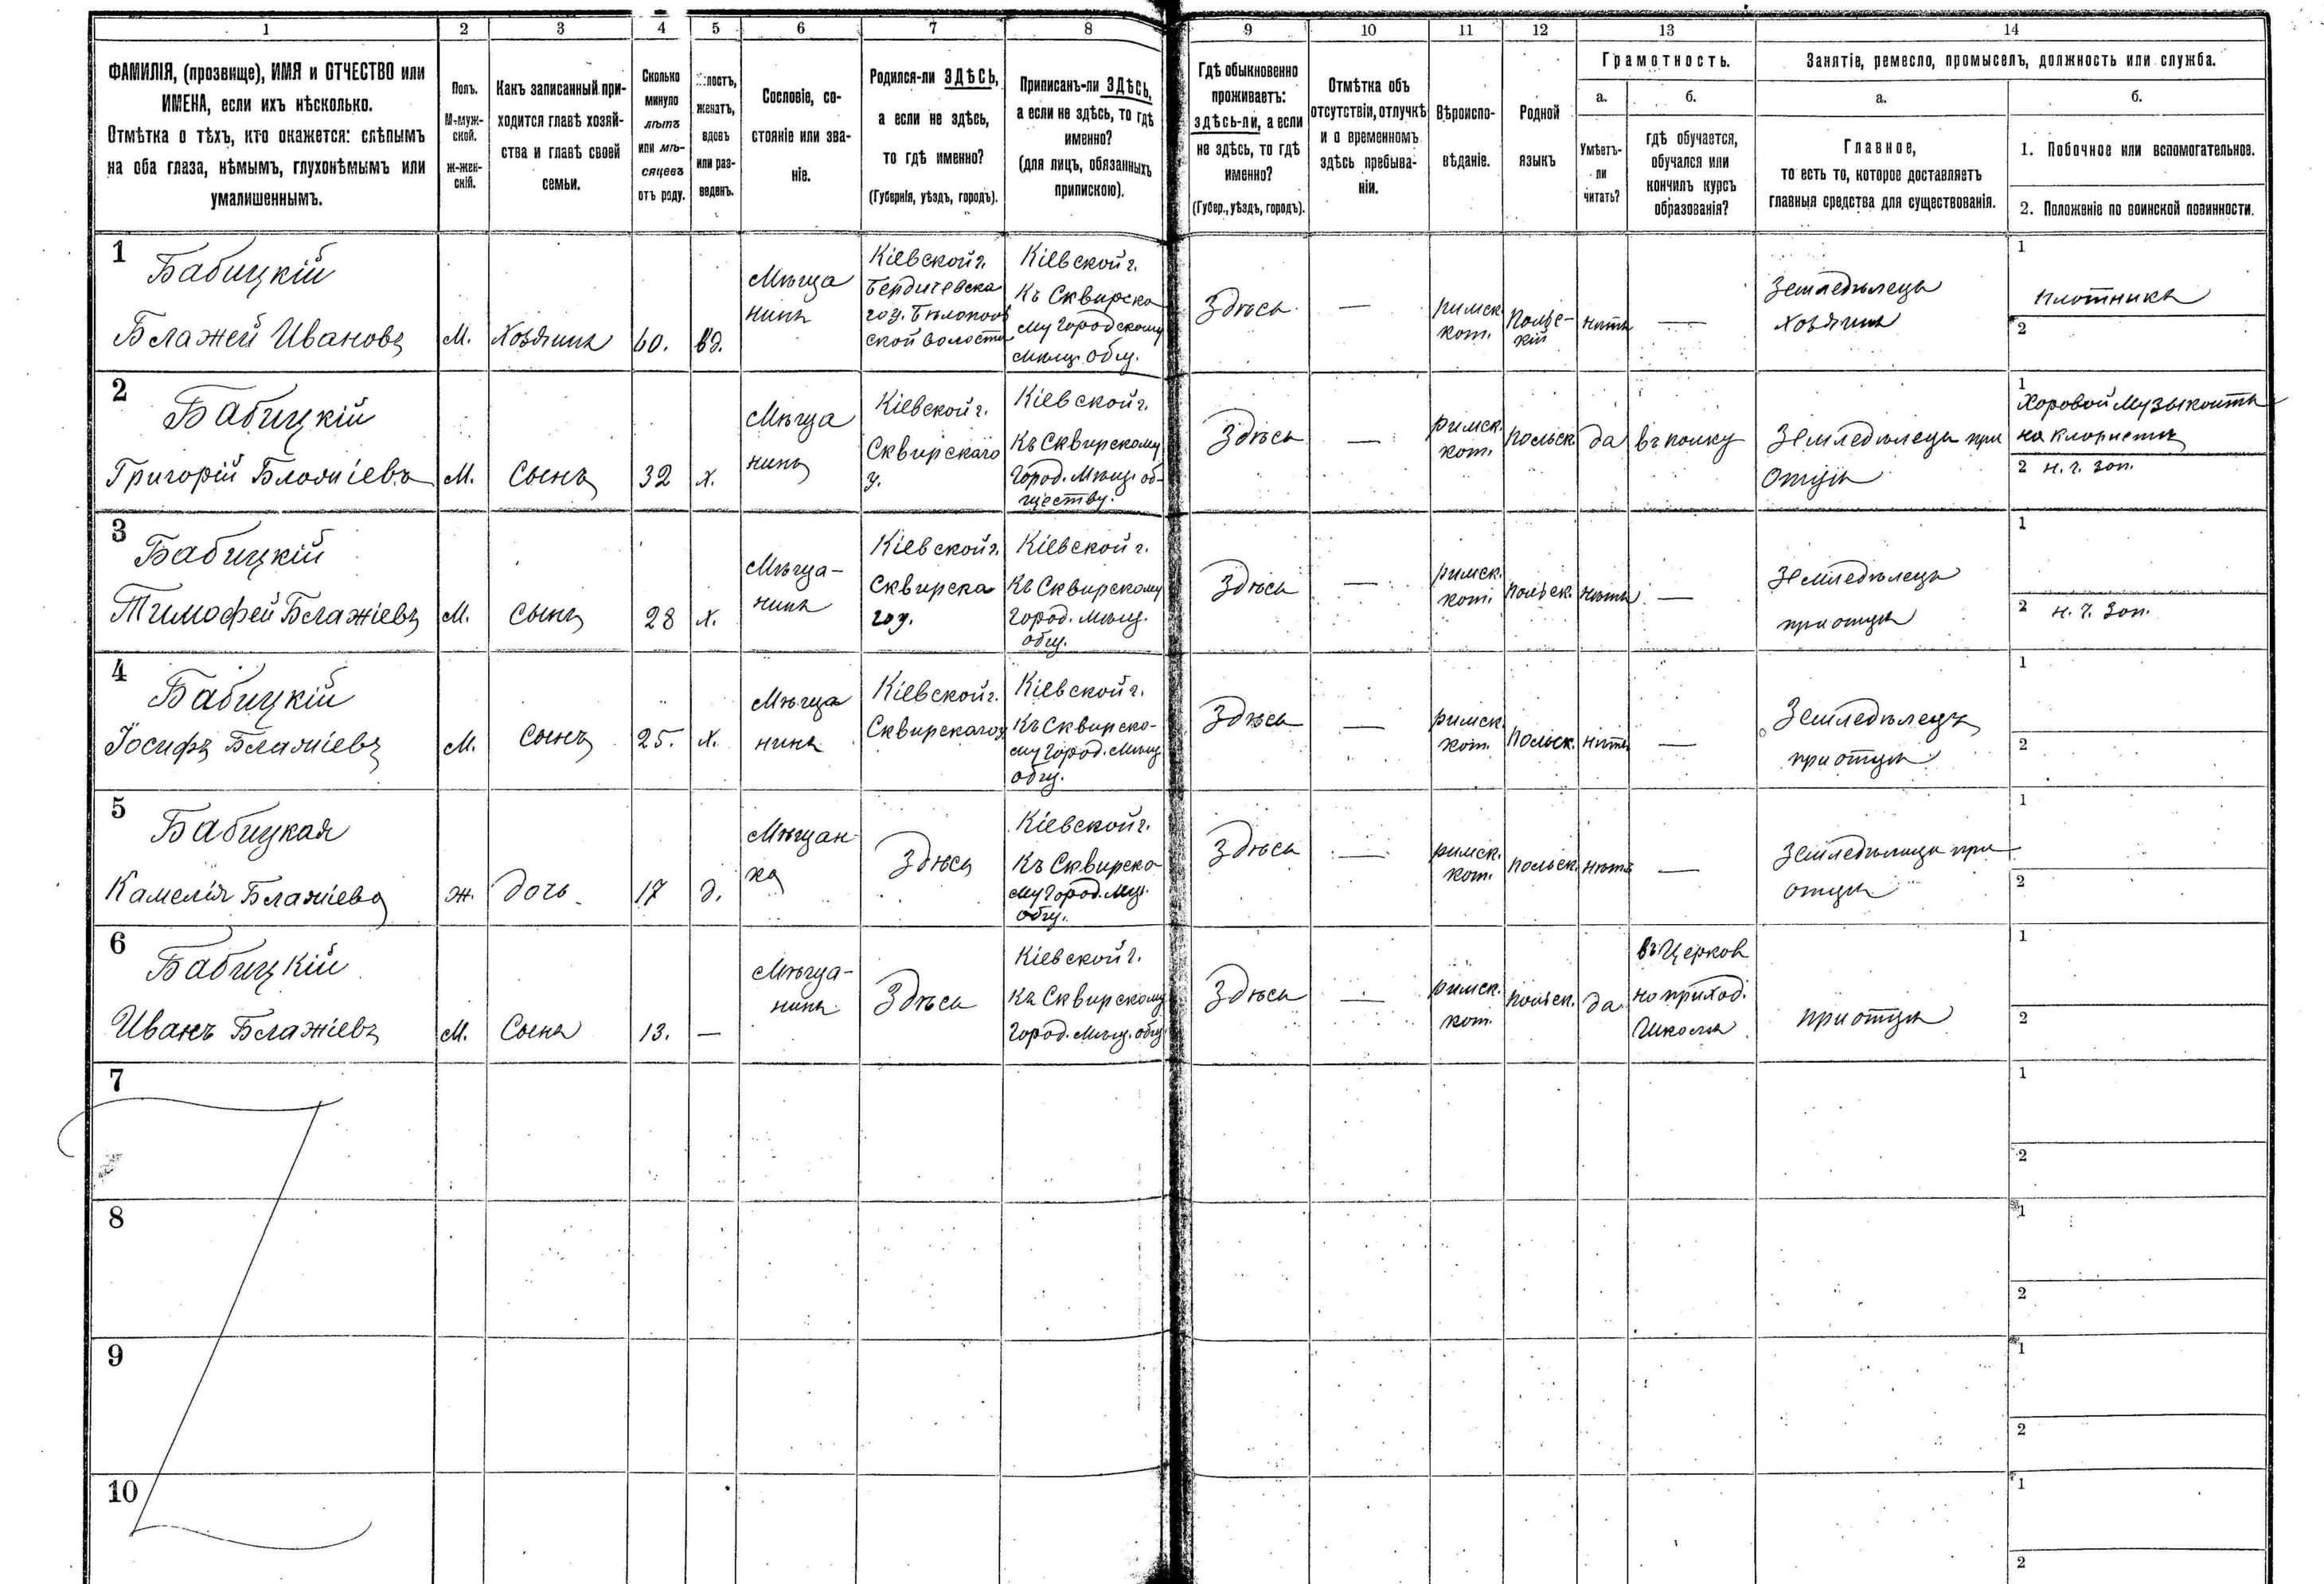 1 2 3 4 5 6 7 8 9 10 11 12 13 14
ФАМИЛІЯ, (прозвище), ИМЯ и ОТЧЕСТВО или
ИМЕНА, если ихъ нѣсколько.
Отмѣтка о тѣхъ, кто окажется: слѣпымъ
на оба глаза, нѣмымъ, глухонѣмымъ или
умалишеннымъ.
Полъ.
М-муж-
ской.
ж-жен-
скій.
Какъ записанный при-
ходится главѣ хозяй-
ства и главѣ своей
семьи.
Сколько
минуло
лѣтъ
или мѣ-
сяцевъ
отъ роду.
женатъ,
вдовъ
или раз-
веденъ.
Сословіе, со-
стояніе или зва-
ніе.
Родился-ли ЗДѢСЬ,
а если не здѣсь,
то гдѣ именно?
(Губернія, уѣздъ, городъ).
Приписанъ-ли ЗДѢСЬ,
а если не здѣсь, то гдѣ
именно?
(для лицъ, обязанныхъ
припискою).
Гдѣ обыкновенно
проживаетъ:
здѣсь-ли, а если
не здѣсь, то гдѣ
именно?
(Губер., уѣздъ, городъ).
Отмѣтка объ
отсутствіи, отлучкѣ
и о временномъ
здѣсь пребыва-
ніи.
Вѣроиспо-
вѣданіе.
Родной
языкъ
Грамотность.
а.
Умѣетъ-
ли
читать?
б.
гдѣ обучается,
обучался или
кончилъ курсъ
образованія?
Занятіе, ремесло, промыселъ, должность или служба.
а.
Главное,
то есть то, которое доставляетъ
главныя средства для существованія.
б.
1. Побочное или вспомогательное.
2. Положеніе по воинской повинности.
1
Бабицкій
Блажей Ивановъ
М.
Хозяинъ
60.
вд.
Мѣща
нинъ
Кіевской г.
Бердичевска
го у. Бѣлополь
ской волости
Кіевской г.
Къ Сквирско
му Городскому
мѣщ. общ.
Здѣсь
—
римск.
кот.
Польс-
кій
нѣтъ
—
Земледѣлецъ
Хозяинъ
1
плотникъ
2
2
Бабицкій
Григорій Блажіевъ
М.
Сынъ
32
х.
Мѣща
нинъ
Кіевской г.
Сквирскаго
у.
Кіевской г.
Къ Сквирскому
Город. Мѣщ. об-
ществу.
Здѣсь
—
римск.
кот.
Польск.
да
въ полку
Земледѣлецъ при
Отцѣ
1
Хоровой Музыкантъ
на кларнетѣ
2 н. ч. зап.
3
Бабицкій
Тимофей Блажіевъ
М.
сынъ
28
х.
Мѣща-
нинъ
Кіевской г.
Сквирска
го у.
Кіевской г.
Къ Сквирскому
город. мѣщ.
общ.
Здѣсь
—
римск.
кот.
польск.
нѣтъ
—
Земледѣлецъ
при отцѣ
1
2 н. ч. Зап.
4
Бабицкій
Іосифъ Блажіевъ
М.
Сынъ
25.
х.
Мѣща
нинъ
Кіевской г.
Сквирскаго у
Кіевской г.
Къ Сквирско-
му Город. Мѣщ
общ.
Здѣсь
—
римск.
кот.
Польск.
нѣтъ
—
Земледѣлецъ
при отцѣ
1
2
5
Бабицкая
Камелія Блажіева
ж.
дочь
17
д.
Мѣщан
ка
Здѣсь
Кіевской г.
Къ Сквирско
му Город. Мщ.
общ.
Здѣсь
—
римск.
кот.
польск.
нѣтъ
—
Земледѣлица при
отцѣ
1
2
6
Бабицкій
Иванъ Блажіевъ
М.
Сынъ
13.
—
Мѣща-
нинъ
Здѣсь
Кіевской г.
Къ Сквирскому
Город. мѣщ. общ
Здѣсь
—
римск.
кот.
польск.
да
въ Церков
но приход.
Школѣ
при отцѣ
1
2
7
1
2
8
1
2
9
1
2
10
1
2